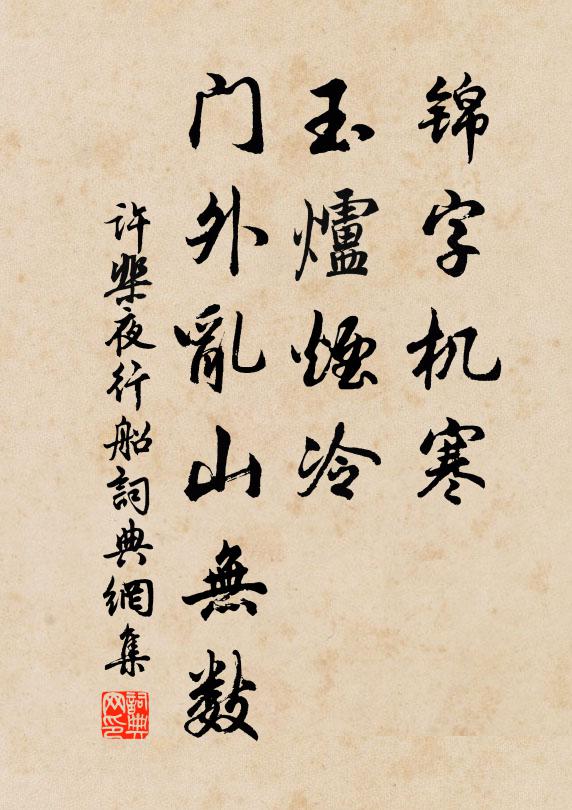 锦字机寒
玉爐煙冷
门外亂山無数
许棐夜行船詞典網集
詞典网印